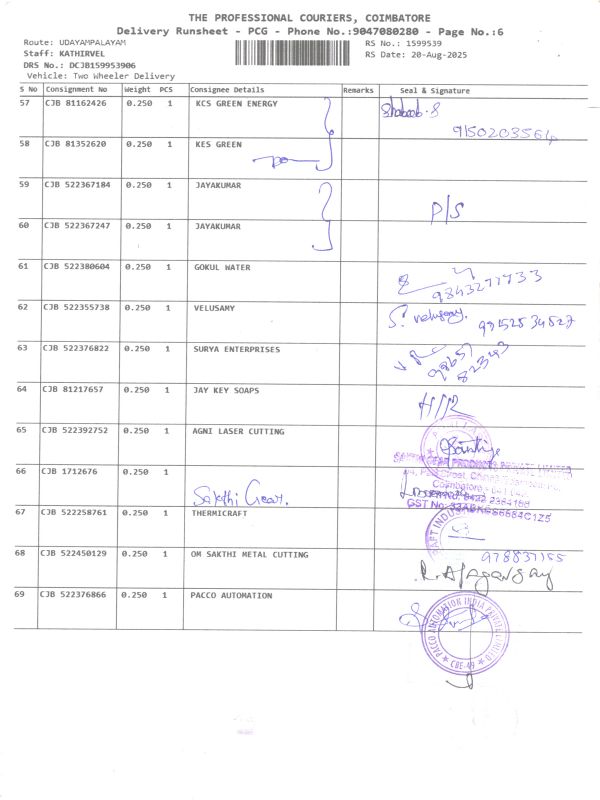 THE PROFESSIONAL COURIERS, COIMBATORE
Delivery Runsheet - PCG - Phone No.:9047080280 - Page No.:6
Route: UDAYAMPALAYAM RS No.: 1599539
Staff: KATHIRVEL RS Date: 20-Aug-2025
DRS No.: DCJB159953906
Vehicle: Two Wheeler Delivery
S No Consignment No Weight PCS Consignee Details Remarks Seal & Signature
57 CJB 81162426 0.250 1 KCS GREEN ENERGY
9150203564
58 CJB 81352620 0.250 1 KES GREEN
59 CJB 522367184 0.250 1 JAYAKUMAR
P/S
60 CJB 522367247 0.250 1 JAYAKUMAR
61 CJB 522380604 0.250 1 GOKUL WATER
9843277733
62 CJB 522355738 0.250 1 VELUSAMY
S. velusamy. 99152534527
63 CJB 522376822 0.250 1 SURYA ENTERPRISES
98657
82343
64 CJB 81217657 0.250 1 JAY KEY SOAPS
65 CJB 522392752 0.250 1 AGNI LASER CUTTING
PRIVATE LIMITED
66 CJB 1712676 0.250 1
Sakthi Gear.
67 CJB 522258761 0.250 1 THERMICRAFT
68 CJB 522450129 0.250 1 OM SAKTHI METAL CUTTING
978837155
69 CJB 522376866 0.250 1 PACCO AUTOMATION
PACCO AUTOMATION INDIA PRIVATE LIMITED
CBE-49